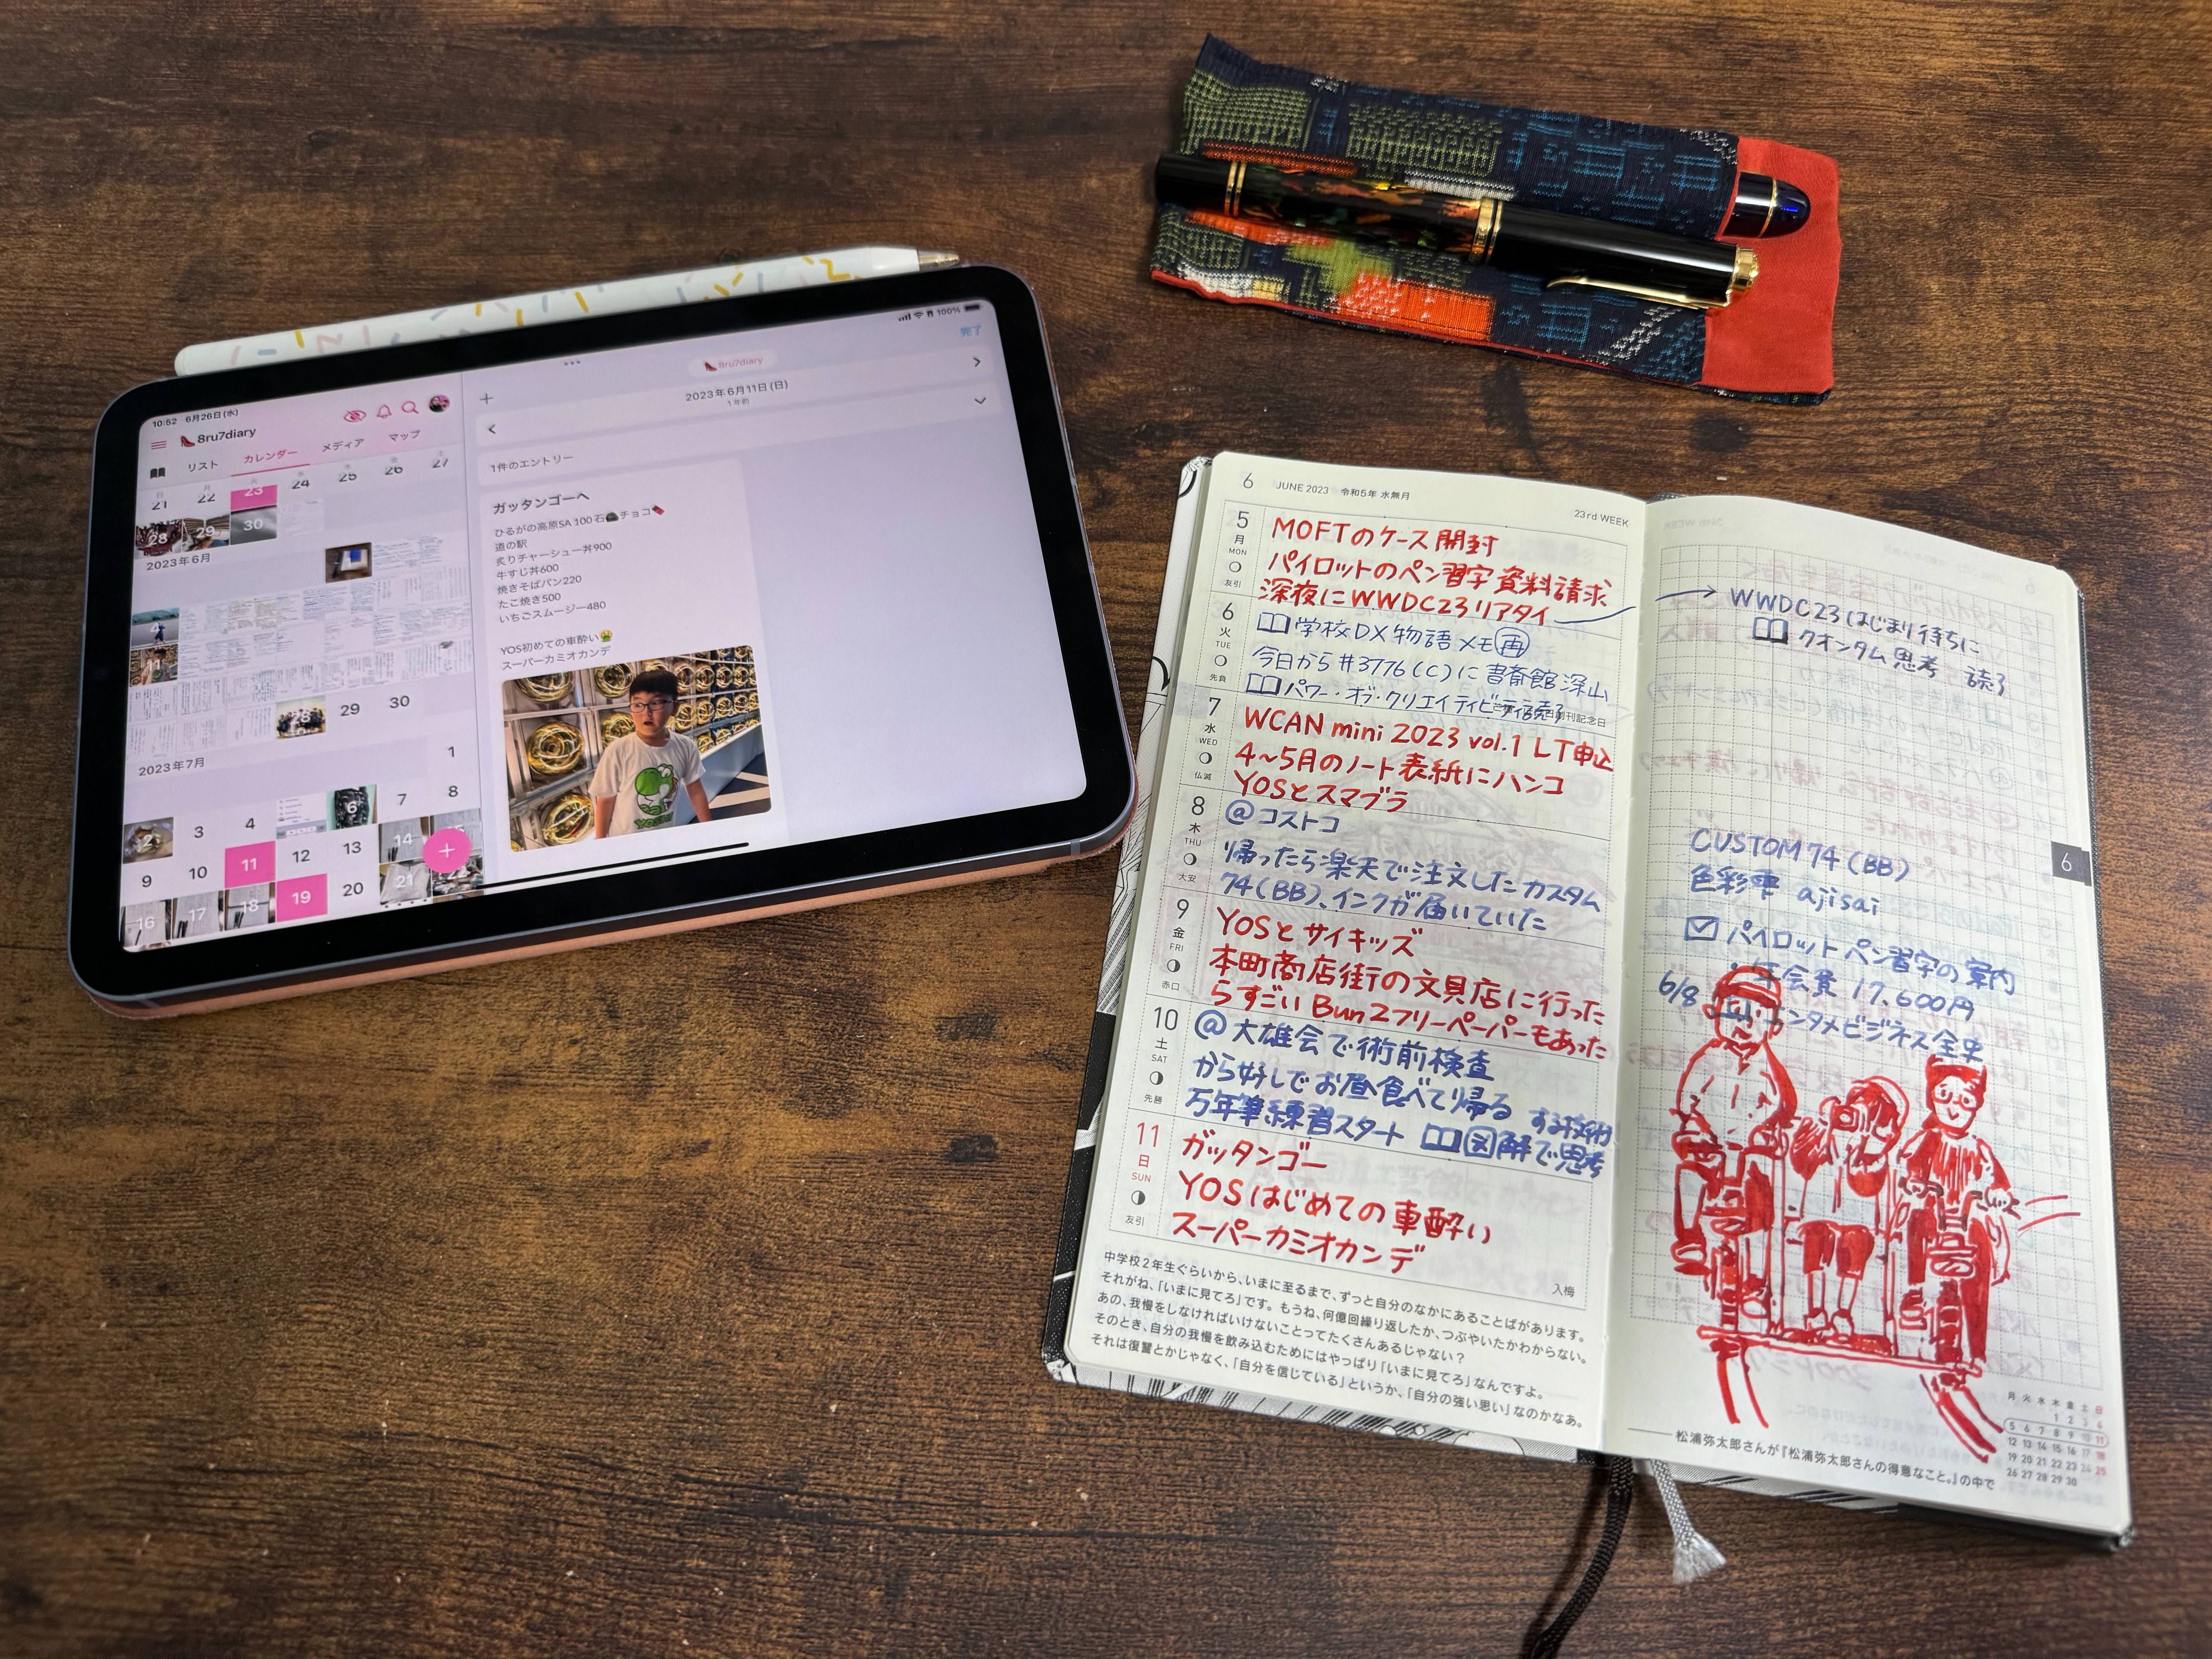 10:52 6月26日(水)
8ru7diary
リスト カレンダー メディア マップ
21 22 23 24 25 26 27
28 29 30
2023年6月
4
11
28 29 30
2023年7月
1
2 3 4 6 7 8
9 10 11 12 13 14
16 17 18 19 20 21
100%
完了
8ru7diary
2023年6月11日(日)
1年前
1件のエントリー
ガッタンゴーへ
ひるがの高原SA 100 石チョコ
道の駅
炙りチャーシュー丼900
牛すじ丼600
焼きそばパン220
たこ焼き500
いちごスムージー480
YOS初めての車酔い
スーパーカミオカンデ
6 JUNE 2023 令和5年 水無月
23rd WEEK
5 月 MON 友引
MOFTのケース開封
パイロットのペン習字資料請求
深夜にWWDC23リアタイ
6 火 TUE 先負
学校DX物語メモ再
今日から#3776(C)に書斎館深山
パワー・オブ・クリエイティビティ読了
7 水 WED 仏滅
WCAN mini 2023 vol.1 LT申込
4〜5月のノート表紙にハンコ
YOSとスマブラ
8 木 THU 大安
@コストコ
帰ったら楽天で注文したカスタム
74(BB)、インクが届いていた
9 金 FRI 赤口
YOSとサイキッズ
本町商店街の文具店に行った
らすごい Bun2フリーペーパーもあった
10 土 SAT 先勝
@大雄会で術前検査
から好しでお昼食べて帰る
万年筆練習スタート 図解で思考
する技術
11 日 SUN 友引
ガッタンゴー
YOSはじめての車酔い
スーパーカミオカンデ
入梅
中学校2年生ぐらいから、いまに至るまで、ずっと自分のなかにあることばがあります。
それがね、「いまに見てろ」です。もうね、何億回繰り返したか、つぶやいたかわからない。
あの、我慢をしなければいけないことってたくさんあるじゃない？
そのとき、自分の我慢を飲み込むためにはやっぱり「いまに見てろ」なんですよ。
それは復讐とかじゃなく、「自分を信じている」というか、「自分の強い思い」なのかなあ。
→ WWDC23はじまり待ちに
クオンタム思考 読了
6
CUSTOM 74 (BB)
色彩雫 ajisai
☑ パイロットペン習字の案内
・年会費 17,600円
6/8 エンタメビジネス全史
月 火 水 木 金 土 日
1 2 3 4
5 6 7 8 9 10 11
12 13 14 15 16 17 18
19 20 21 22 23 24 25
26 27 28 29 30
松浦弥太郎さんが『松浦弥太郎さんの得意なこと。』の中で